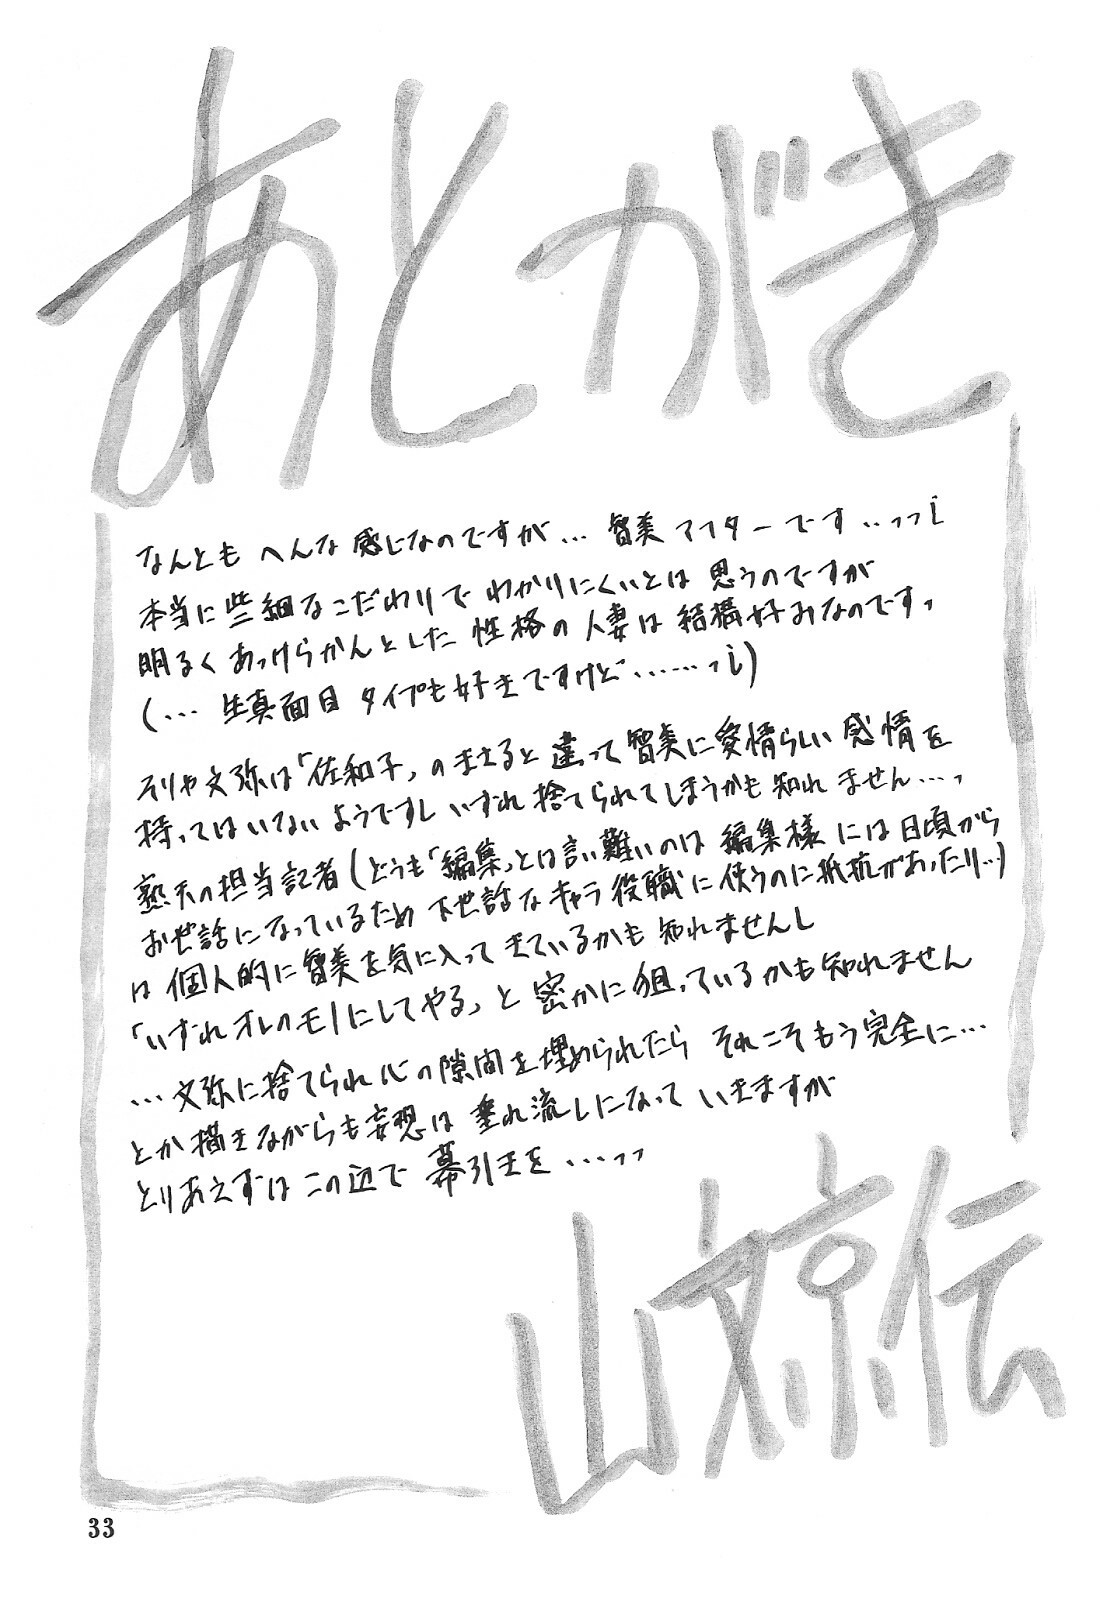 あとがき
なんとも へんな 感じなのですが… 智美 アフターです…っっi
本当に 些細なこだわりで わかりにくいとは 思うのですが
明るく あっけらかんとした 性格の 人妻は 結構好みなのです、
(… 生真面目 タイプも好きですけど……っi)
そりゃ文弥は「佐和子」のまさると 違って 智美に愛情らしい 感情を
持ってはいないようですし いずれ 捨てられてしまうかも 知れません…、
熟天の担当記者(どうも「編集」とは言い難いのは 編集様には日頃から
お世話になっているため 下世話な キャラ 役職に使うのに抵抗があったり…)
は 個人的に智美を気に入って きているかも 知れませんし
「いずれ オレのモノにしてやる」と 密かに狙っているかも知れません
…文弥に捨てられ 心の隙間を埋められたら それこそもう完全に…
とか描きながらも妄想は 垂れ流しになって いきますが
とりあえずは この辺で 幕引きを…っっ
山文京伝
33